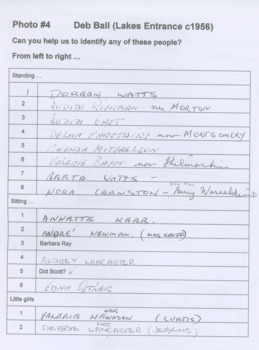 Photo #4 Deb Ball (Lakes Entrance c1956)
Can you help us to identify any of these people?
From left to right ...
Standing ...
1 DOREEN WATTS
2 JUDITH KINKMAN nee MORTON
3 JUDITH
4 DELMA now MONTGOMERY
5 MITCHELSON
6 VALERIE now
7 WATTS -
8 NORA CRANSTON -
Sitting ...
1 ANNETTE KERR.
2 ANDRE' NEWMAN.
3 Barbara Ray
4 AUDREY LANCASTER
5 Dot Scott? ✓
6 EDNA
Little girls
1 VALERIE NEWMAN (CURTIS)
2 DEBBIE LANCASTER (JENKINS)